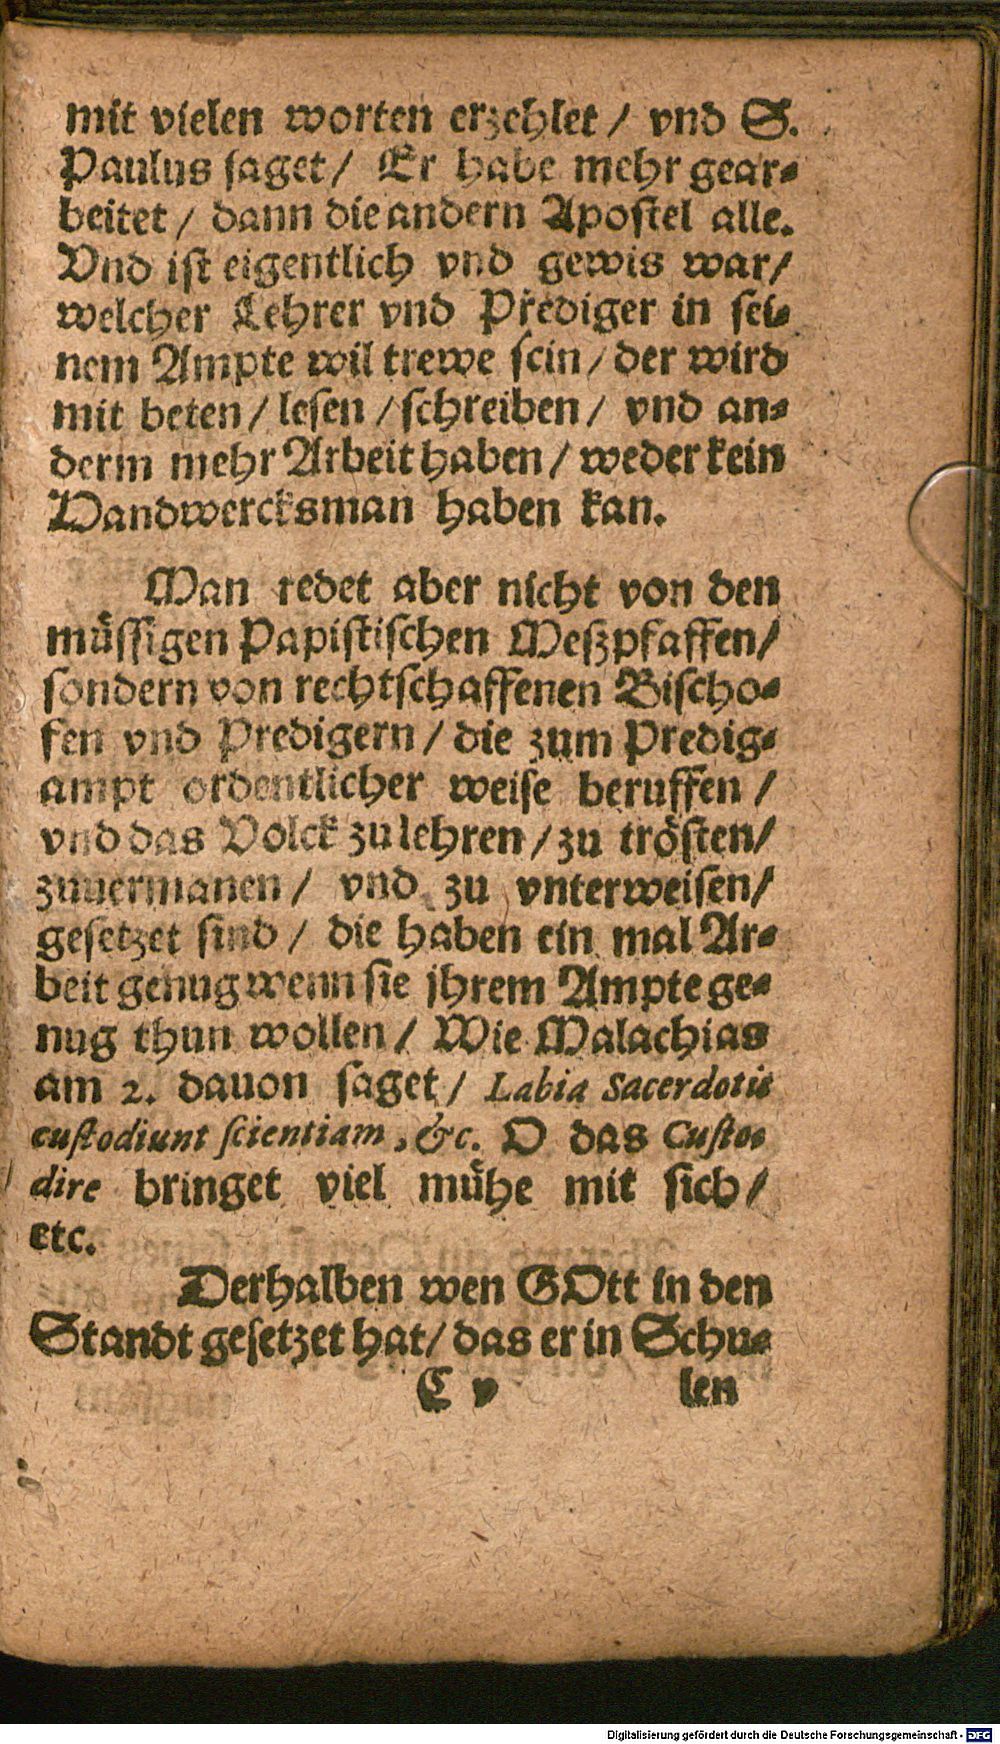 mit vielen worten erzehlet / vnd S.
Paulus saget / Er habe mehr gear⸗
beitet / dann die andern Apostel alle.
Vnd ist eigentlich vnd gewis war /
welcher Lehrer vnd Prediger in sei⸗
nem Ampte wil trewe sein / der wird
mit beten / lesen / schreiben / vnd an⸗
derm mehr Arbeit haben / weder kein
Handwercksman haben kan.
Man redet aber nicht von den
müssigen Papistischen Meßpfaffen /
sondern von rechtschaffenen Bischo⸗
fen vnd Predigern / die zum Predig⸗
ampt ordentlicher weise beruffen /
vnd das Volck zu lehren / zu trösten /
zuuermanen / vnd zu vnterweisen /
gesetzet sind / die haben ein mal Ar⸗
beit genug wenn sie jhrem Ampte ge⸗
nug thun wollen / Wie Malachias
am 2. dauon saget / Labia Sacerdotis
custodiunt scientiam, &c. O das Custo⸗
dire bringet viel mühe mit sich /
etc.
Derhalben wen GOtt in den
Standt gesetzet hat / das er in Schu⸗
C v len
Digitalisierung gefördert durch die Deutsche Forschungsgemeinschaft - DFG